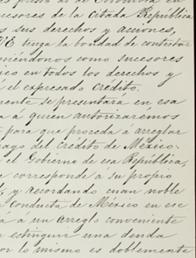 de Colombia en
cesores de la Citada República
s sus derechos y acciones,
VE tenga la bondad de contestar
niéndonos como sucesores
ico en todos los derechos y
l expresado crédito.
mente se presentará en esa
a á quien autorizaremos
para que proceda a arreglar
pago del credito de México.
el Gobierno de esa República,
e corresponde a su propio
, y acordando cuan noble
conducta de México en ese
á a un arreglo conveniente
a estinguir una deuda
or lo mismo es doblemente